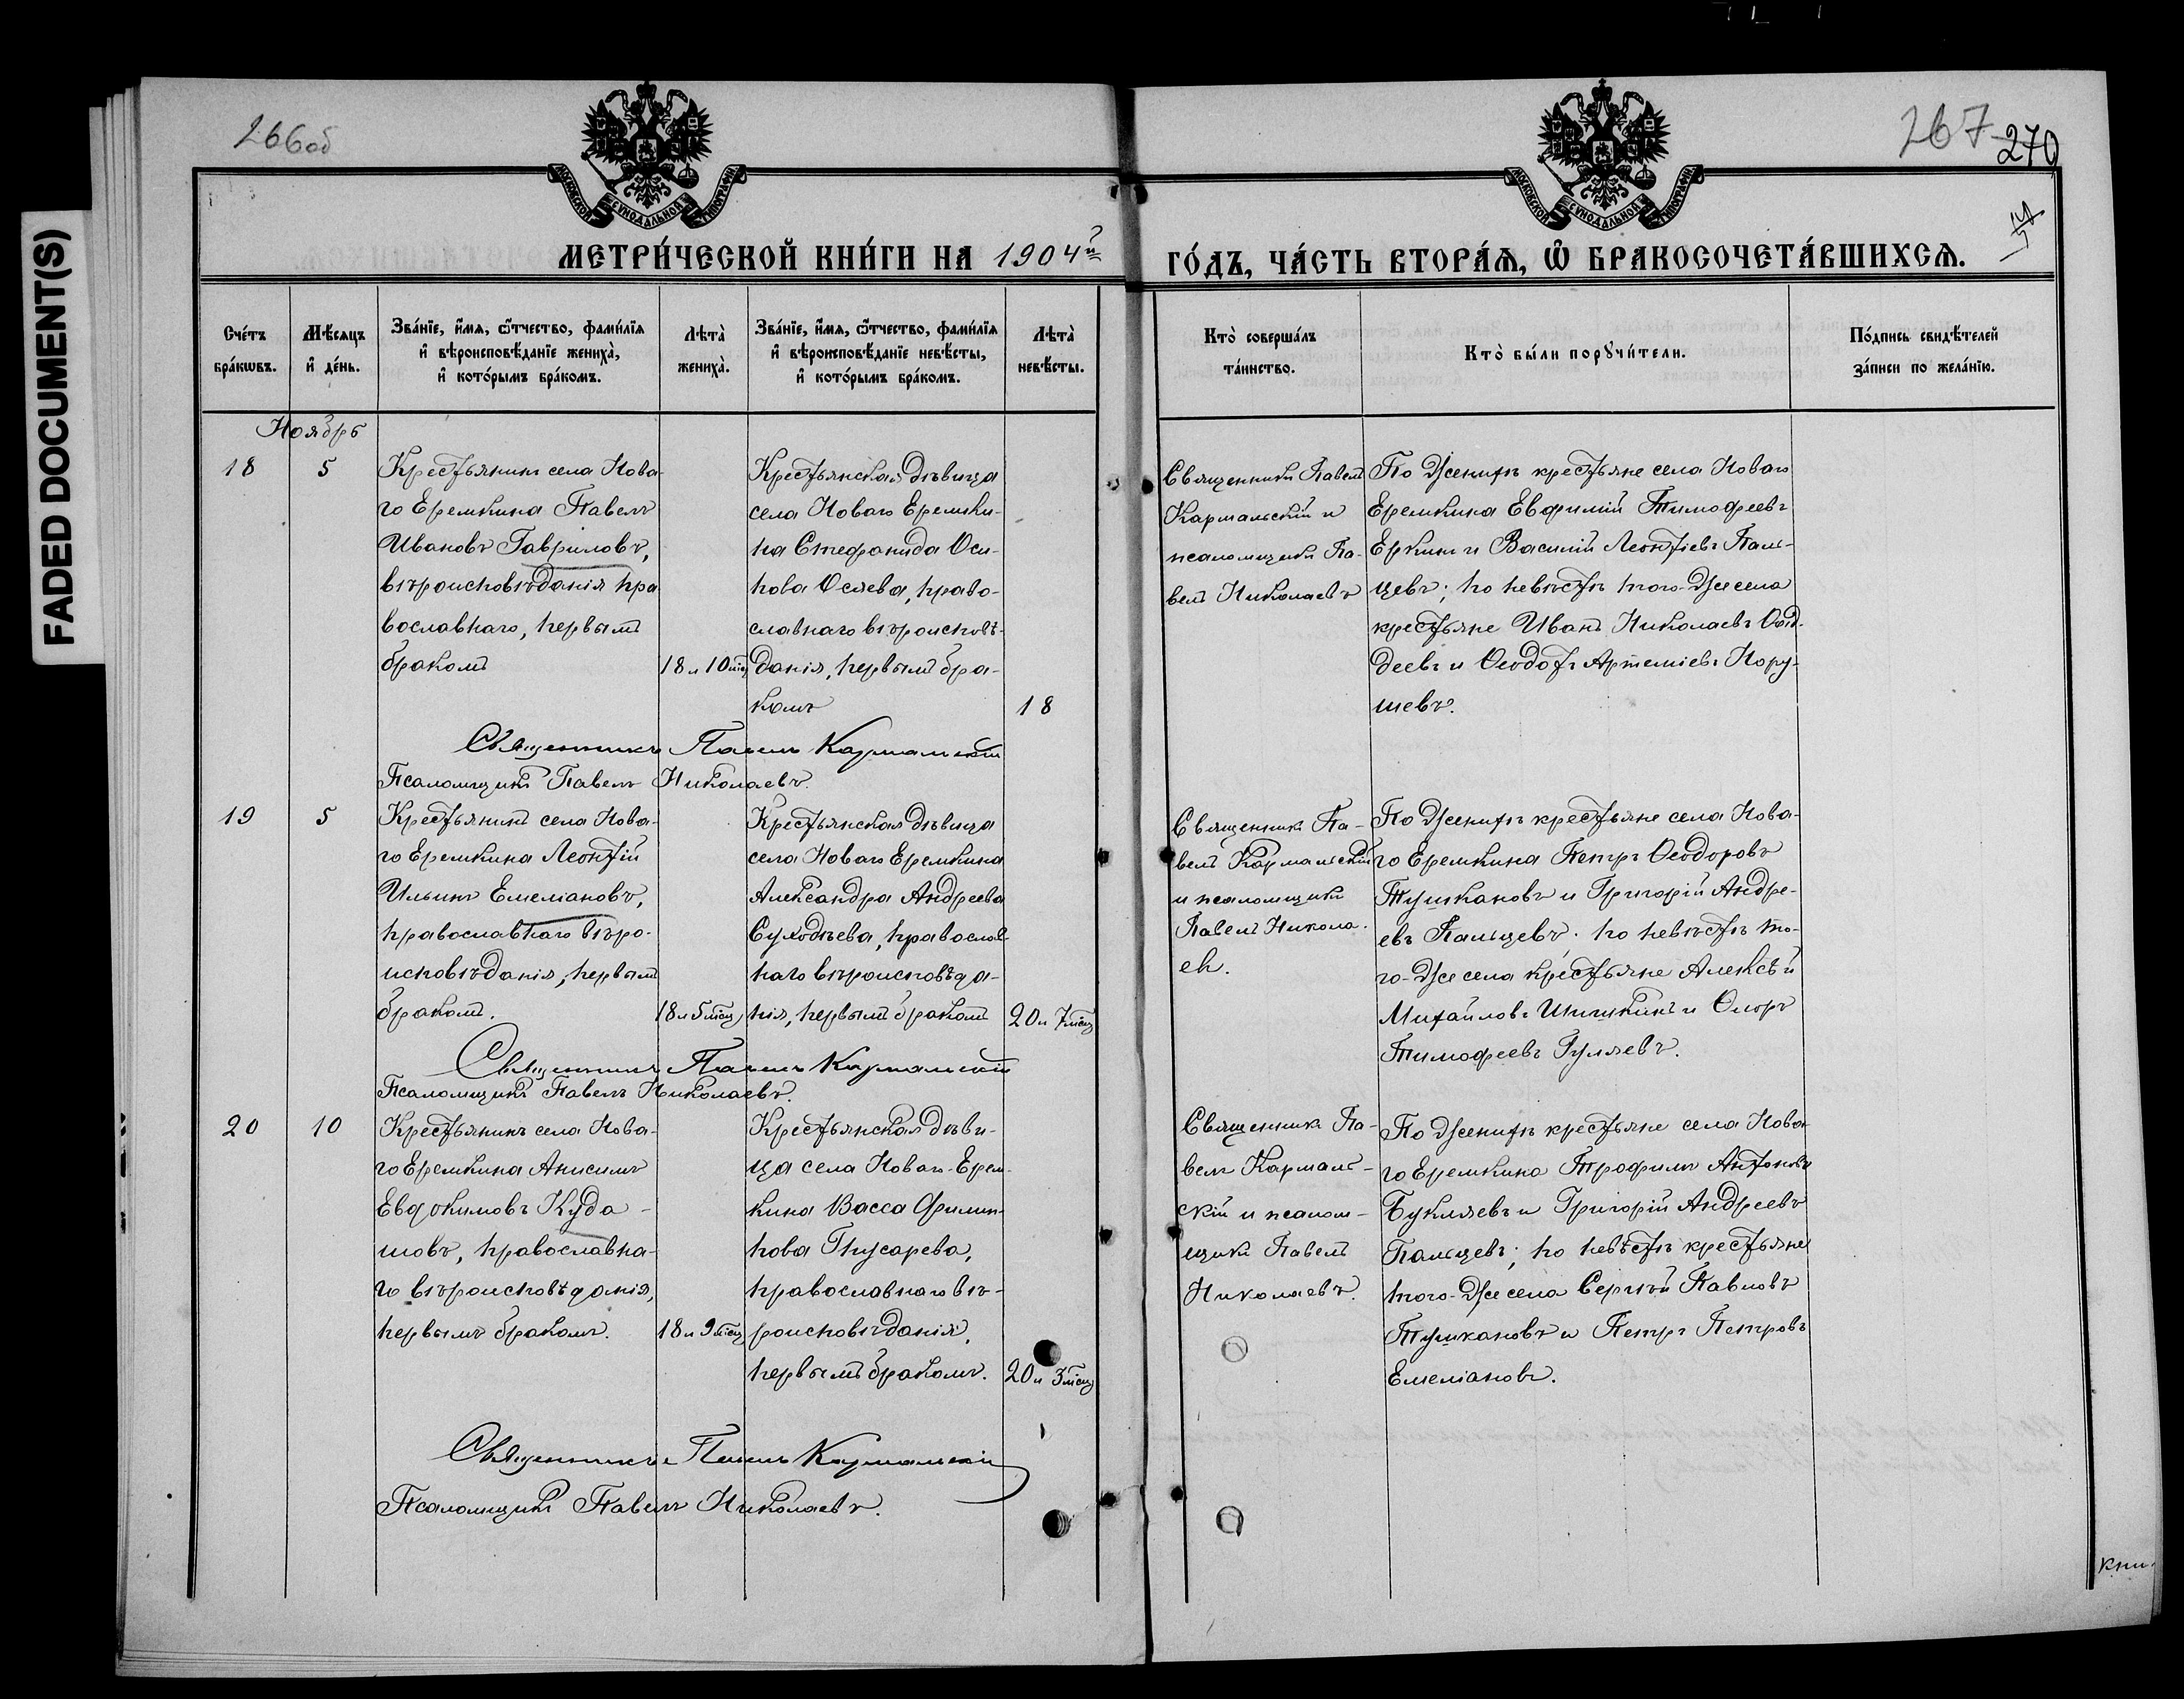 FADED DOCUMENT(S)
266об
267
270
МОСКОВСКОЙ СѴНОДАЛЬНОЙ ТИПОГРАФІИ
МОСКОВСКОЙ СѴНОДАЛЬНОЙ ТИПОГРАФІИ
МЕТРИ́ЧЕСКОЙ КНИ́ГИ НА 1904й
ГО́ДЪ, ЧА́СТЬ ВТОРА́Ѧ, Ѽ БРАКОСОЧЕТА́ВШИХСѦ.
Сче́тъ
бра́кѡвъ.
Мѣ́сяцъ
и҆ де́нь.
Зва́нїе, и҆́мѧ, ѻ҆́тчество, фами́лїѧ
и҆ вѣроисповѣ́данїе жениха̀,
и҆ кото́рымъ бра́комъ.
Лѣта̀
жениха̀.
Зва́нїе, и҆́мѧ, ѻ҆́тчество, фами́лїѧ
и҆ вѣроисповѣ́данїе невѣ́сты,
и҆ кото́рымъ бра́комъ.
Лѣта̀
невѣ́сты.
Кто̀ соверша́лъ
та́инство.
Кто̀ бы́ли порꙋчи́тели.
По́дпись свидѣ́телей
за́писи по жела́нїю.
Ноябрь
18
5
Крестьянинъ села Нова-
го Еремкина Павелъ
Ивановъ Гавриловъ,
вѣроисповѣданія пра
вославнаго, первымъ
бракомъ
18 и 10 мѣсц
Крестьянская дѣвица
села Новаго Еремки-
на Стефанида Оси-
пова Осяева, право-
славнаго вѣроисповѣ-
данія, первымъ бра-
комъ
18
Священникъ Павелъ
Кармальскій и
псаломщикъ Па-
велъ Николаевъ
По женихѣ крестьяне села Новаго
Еремкина Евфимій Тимофеевъ
Еркинъ и Василій Леонтіевъ Паль-
цевъ; по невѣстѣ того-же села
крестьяне Иванъ Николаевъ Фад-
деевъ и Ѳеодотъ Артеміевъ Пору-
шевъ.
Священникъ Павелъ Кармальскій
Псаломщикъ Павелъ Николаевъ.
19
5
Крестьянинъ села Нова-
го Еремкина Леонтій
Ильинъ Емеліановъ,
православнаго вѣро-
исповѣданія, первымъ
бракомъ.
18 и 5 мѣсц
Крестьянская дѣвица
села Новаго Еремкина
Александра Андреева
Суходѣева, православ-
наго вѣроисповѣда-
нія, первымъ бракомъ
20 и 7 мѣсц
Священникъ Па-
велъ Кармальскій
и псаломщикъ
Павелъ Никола-
евъ.
По женихѣ крестьяне села Нова-
го Еремкина Петръ Ѳеодоровъ
Тушкановъ и Григорій Андре-
евъ Пальцевъ. по невѣстѣ то-
го-же села крестьяне Алексѣй
Михайловъ Шишкинъ и
Тимофеевъ Гуляевъ.
Священникъ Павелъ Кармальскій
Псаломщикъ Павелъ Николаевъ.
20
10
Крестьянинъ села Нова-
го Еремкина Анисимъ
Евдокимовъ Куда-
шовъ, православна-
го вѣроисповѣданія,
первымъ бракомъ.
18 и 9 мѣсц
Крестьянская дѣви-
ца села Новаго-Ерем-
кина Васса Филип-
пова Гнусарева,
православнаго вѣ-
роисповѣданія,
первымъ бракомъ.
20 и 3 мѣсц
Священникъ Па-
велъ Кармаль-
скій и псалом-
щикъ Павелъ
Николаевъ.
По женихѣ крестьяне села Нова-
го Еремкина Трофимъ Антоновъ
Букляевъ и Григорій Андреевъ
Пальцевъ; по невѣстѣ крестьяне
того-же села Сергѣй Павловъ
Тушкановъ и Петръ Петровъ
Емеліановъ.
Священникъ Павелъ Кармальскій
Псаломщикъ Павелъ Николаевъ.
кни-